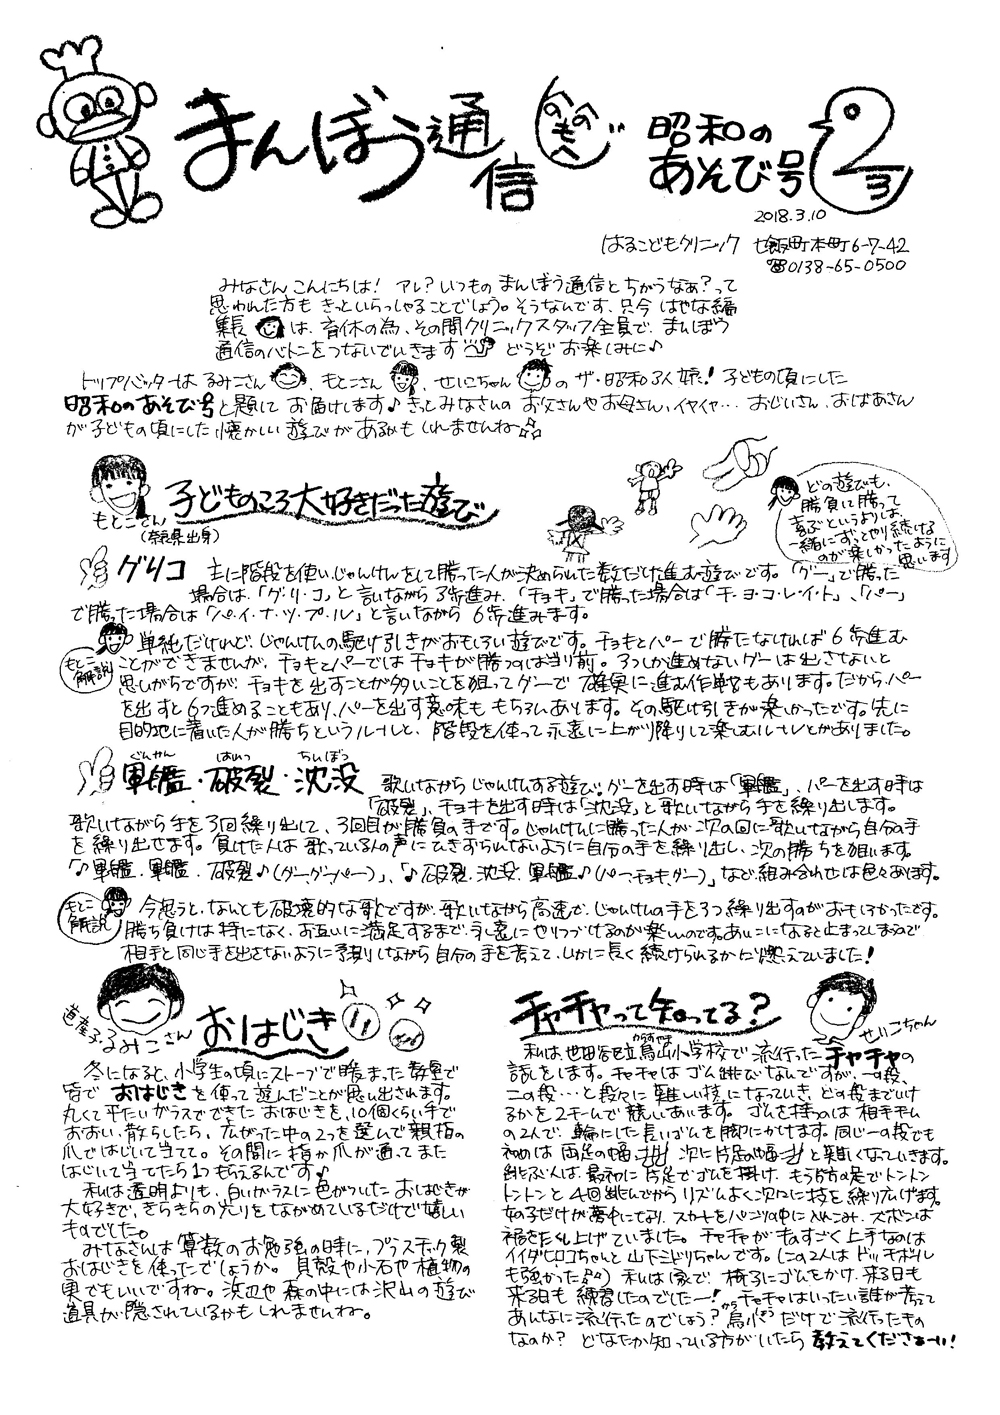 まんぼう通信
へのへのもへじ
昭和の
あそび号
23
2018.3.10
はるこどもクリニック 七飯町本町6-7-42
☎0138-65-0500
みなさんこんにちは! アレ? いつものまんぼう通信とちがうなぁ?って
思われた方もきっといらっしゃることでしょう。そうなんです、只今はやな編
集長は、育休の為、その間クリニックスタッフ全員で、まんぼう
通信のバトンをつないでいきます どうぞお楽しみに♪
トップバッターはるみこさん、もとこさん、せいこちゃんのザ・昭和3人娘! 子どもの頃にした
昭和のあそび号と題してお届けします♪きっとみなさんのお父さんやお母さん、イヤイヤ…おじいさん、おばあさん
が子どもの頃にした懐かしい遊びがあるかもしれませんね
もとこさん
(奈良県出身)
子どものころ大好きだった遊び
どの遊びも、
勝負に勝って
喜ぶというよりは、
一緒にずっとやり続ける
のが楽しかったように
思います
グリコ 主に階段を使い、じゃんけんをして勝った人が決められた数だけ進む遊びです。「グー」で勝った
場合は、「グ・リ・コ」と言いながら3歩進み、「チョキ」で勝った場合は「チ・ヨ・コ・レ・イ・ト」、「パー」
で勝った場合は「パ・イ・ナ・ツ・プ・ル」と言いながら6歩進みます。
もとこ解説
単純だけれど、じゃんけんの駆け引きがおもしろい遊びです。チョキとパーで勝たなければ6歩進む
ことができませんが、チョキとパーではチョキが勝つのは当り前。3つしか進めないグーは出さないと
思いがちですが、チョキを出すことが多いことを狙ってグーで確実に進む作戦もあります。だから、パー
を出すと6つ進めることもあり、パーを出す意味ももちろんあります。その駆け引きが楽しかったです。先に
目的地に着いた人が勝ちというルールと、階段を使って永遠に上がり降りして楽しむルールとがありました。
ぐんかん はれつ ちんぼつ
軍艦・破裂・沈没 歌いながらじゃんけんする遊び。グーを出す時は「軍艦」、パーを出す時は
「破裂」、チョキを出す時は「沈没」と歌いながら手を繰り出します。
歌いながら手を3回繰り出して、3回目が勝負の手です。じゃんけんに勝った人が次の回に歌いながら自分の手
を繰り出せます。負けた人は歌っている人の声にひきずられないように自分の手を繰り出し、次の勝ちを狙います。
「♪軍艦、軍艦、破裂♪(グー、グー、パー)」、「♪破裂、沈没、軍艦♪(パー、チョキ、グー)」など組み合わせは色々あります。
もとこ解説
今思うと、なんとも破壊的な歌ですが、歌いながら高速で、じゃんけんの手を3つ繰り出すのがおもしろかったです。
勝ち負けは特になく、お互いに満足するまで、永遠にやりつづけるのが楽しいのです。あいこになると止まってしまうので
相手と同じ手を出さないように予測しながら自分の手を考えて、いかに長く続けられるかに燃えていました!
道産子
るみこさん
おはじき
冬になると、小学生の頃にストーブで暖まった教室で
皆でおはじきを使って遊んだことが思い出されます。
丸くて平たいガラスでできたおはじきを、10個くらい手で
おおい、散らしたら、広がった中の2つを選んで親指の
爪ではじいて当てて。その間に指か爪が通ってまた
はじいて当てたら1つもらえるんです♪
私は透明よりも、白いガラスに色がついたおはじきが
大好きで、きらきらの光りをながめているだけで嬉しい
ものでした。
みなさんは算数のお勉強の時に、プラスチック製
おはじきを使ったでしょうか。貝殻や小石や植物の
実でもいいですね。浜辺や森の中には沢山の遊び
道具が隠されているかもしれませんね。
チャチャって知ってる?
せいこちゃん
私は世田谷区立烏山小学校で流行ったチャチャの
からすやま
話をします。チャチャはゴム跳びなんですが、一の段、
二の段…と段々に難しい技になっていき、どの段までいけ
るかを2チームで競いあいます。ゴムを持つのは相手チーム
の2人で、輪にした長いゴムを脚にかけます。同じ一の段でも
初めは両足の幅、次に片足の幅と難しくなっていきます。
跳ぶ人は、最初に片足でゴムを掛け、もう片方の足でトントン
トントンと4回跳んでからリズムよく次々に技を繰り広げます。
女の子だけが夢中になり、スカートをパンツの中に入れこみ、ズボンは
裾をたくし上げていました。チャチャがものすごく上手なのは
イイダヒロコちゃんと山下ミドリちゃんです。(この2人はドッチボール
も強かった♪♪) 私は家で椅子にゴムをかけ、来る日も
来る日も練習したのでした―! チャチャはいったい誰が考えて
あんなに流行ったのでしょう? 烏小だけで流行ったもの
なのか? どなたか知っている方がいたら教えてくださぁーい!